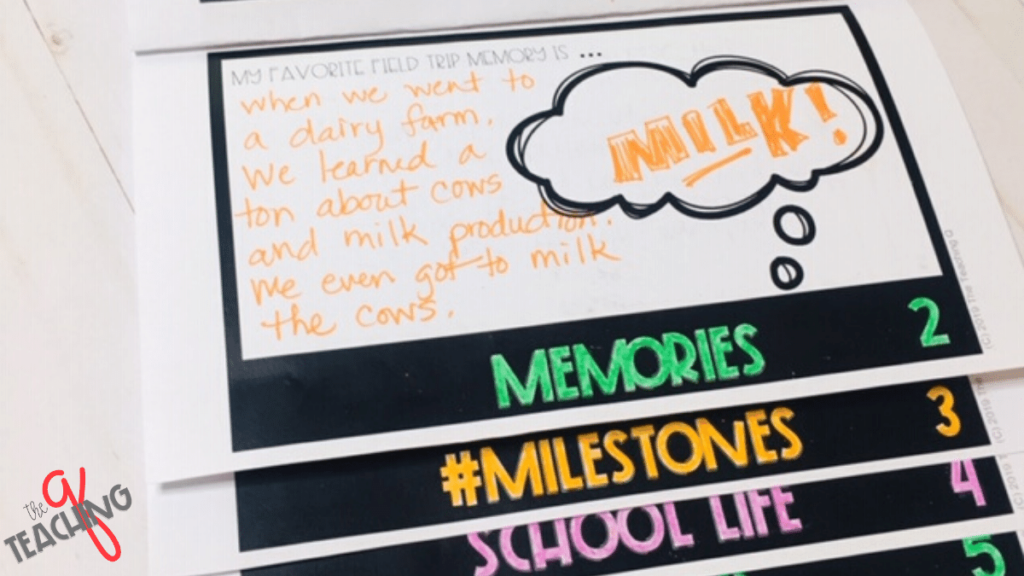 MY FAVORITE FIELD TRIP MEMORY IS ...
when we went to
a dairy farm.
We learned a
ton about cows
and milk production.
We even got to milk
the cows.
MILK!
MEMORIES 2
#MILESTONES 3
SCHOOL LIFE 4
5
(C) 2019 The Teaching Q
(C) 2019 The
(C) 2019
the Q
TEACHING